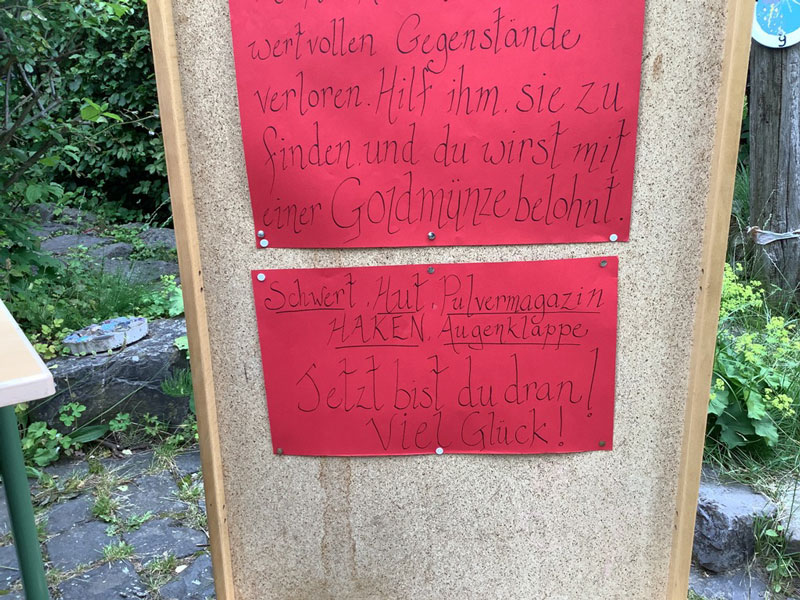 wertvollen Gegenstände
verloren. Hilf ihm, sie zu
finden, und du wirst mit
einer Goldmünze belohnt.
Schwert, Hut, Pulvermagazin
HAKEN, Augenklappe
Jetzt bist du dran!
Viel Glück!